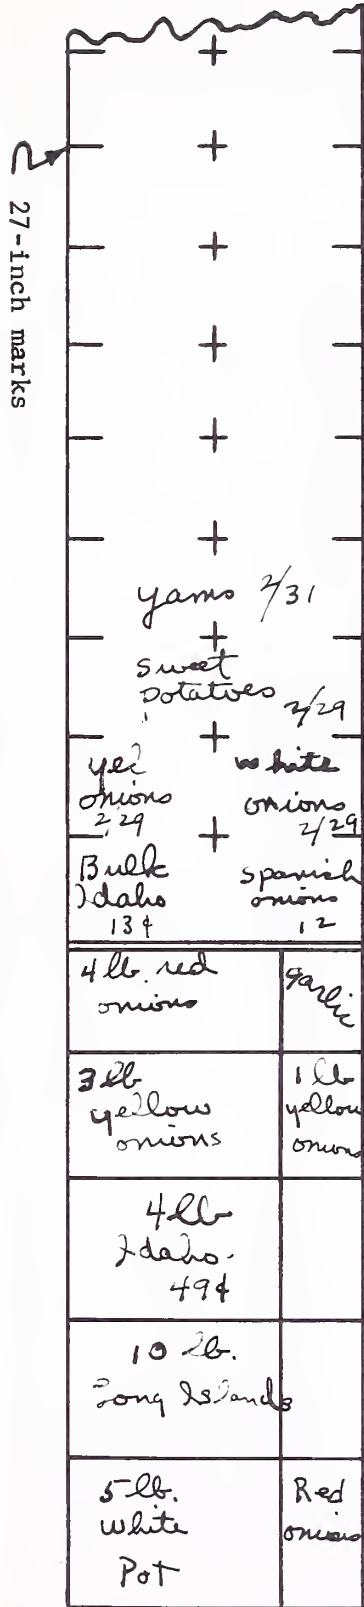 27-inch marks
yams 2/31
sweet
potatoes 2/29
yel
onions
2/29
white
onions
2/29
Bulk
Idaho
13¢
spanish
onions
12
4 lb. red
onions
garlic
3 lb
yellow
onions
1 lb
yellow
onions
4 lb
Idaho.
49¢
10 lb.
Long Islands
5 lb.
White
Pot
Red
onions